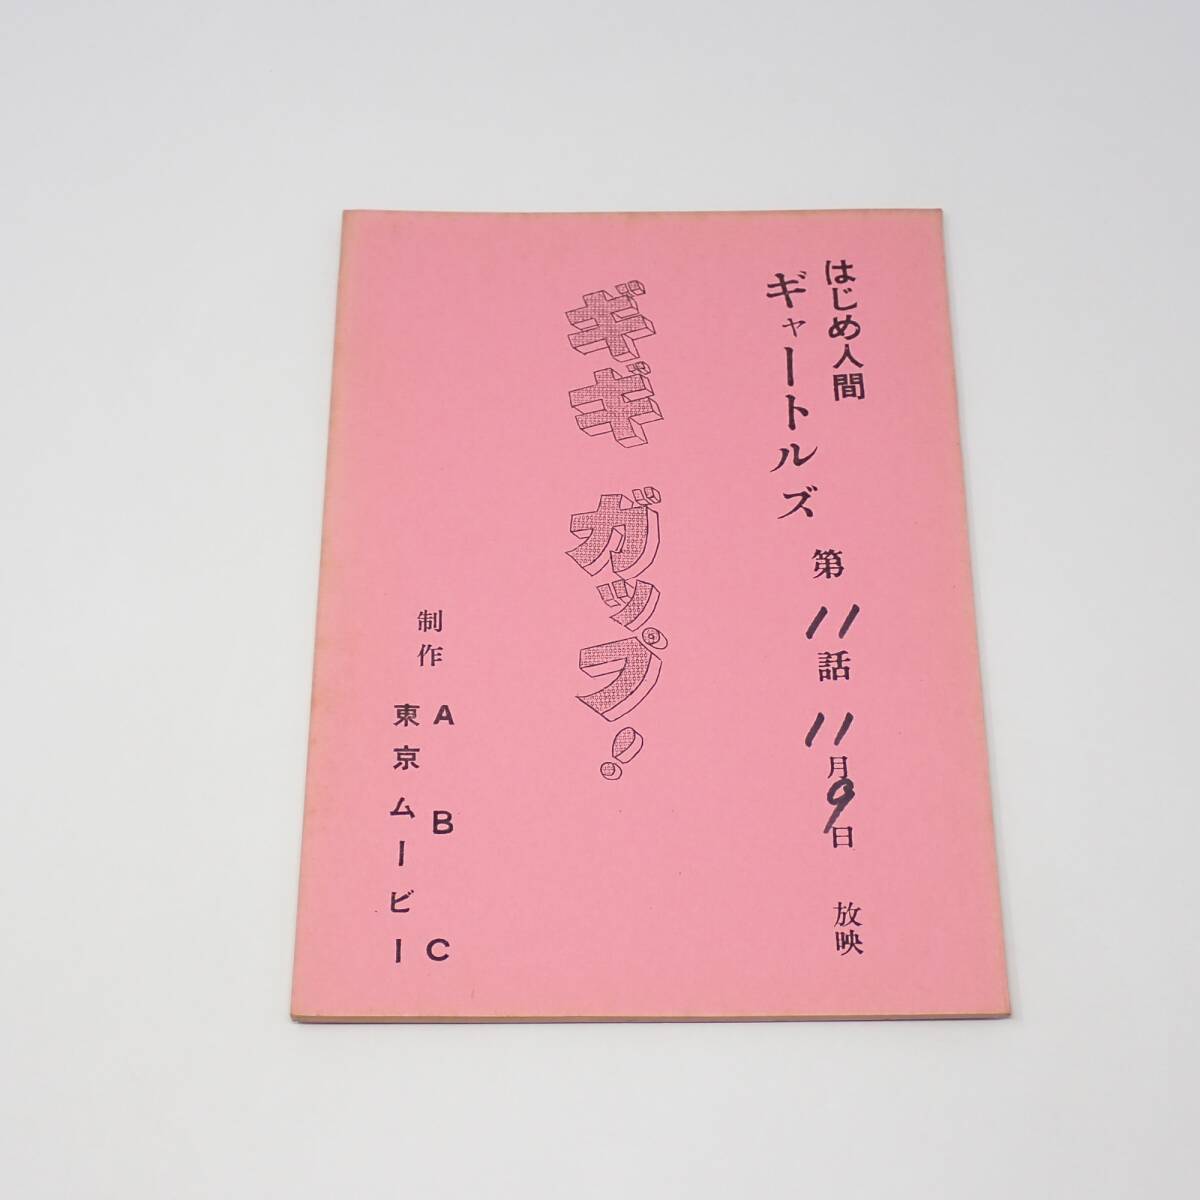 はじめ人間
ギャートルズ
第11話 11月9日 放映
ギギ ガップ!
制作
ABC
東京ムービー